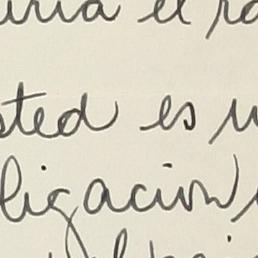 uria el ra
sted es u
ligación,